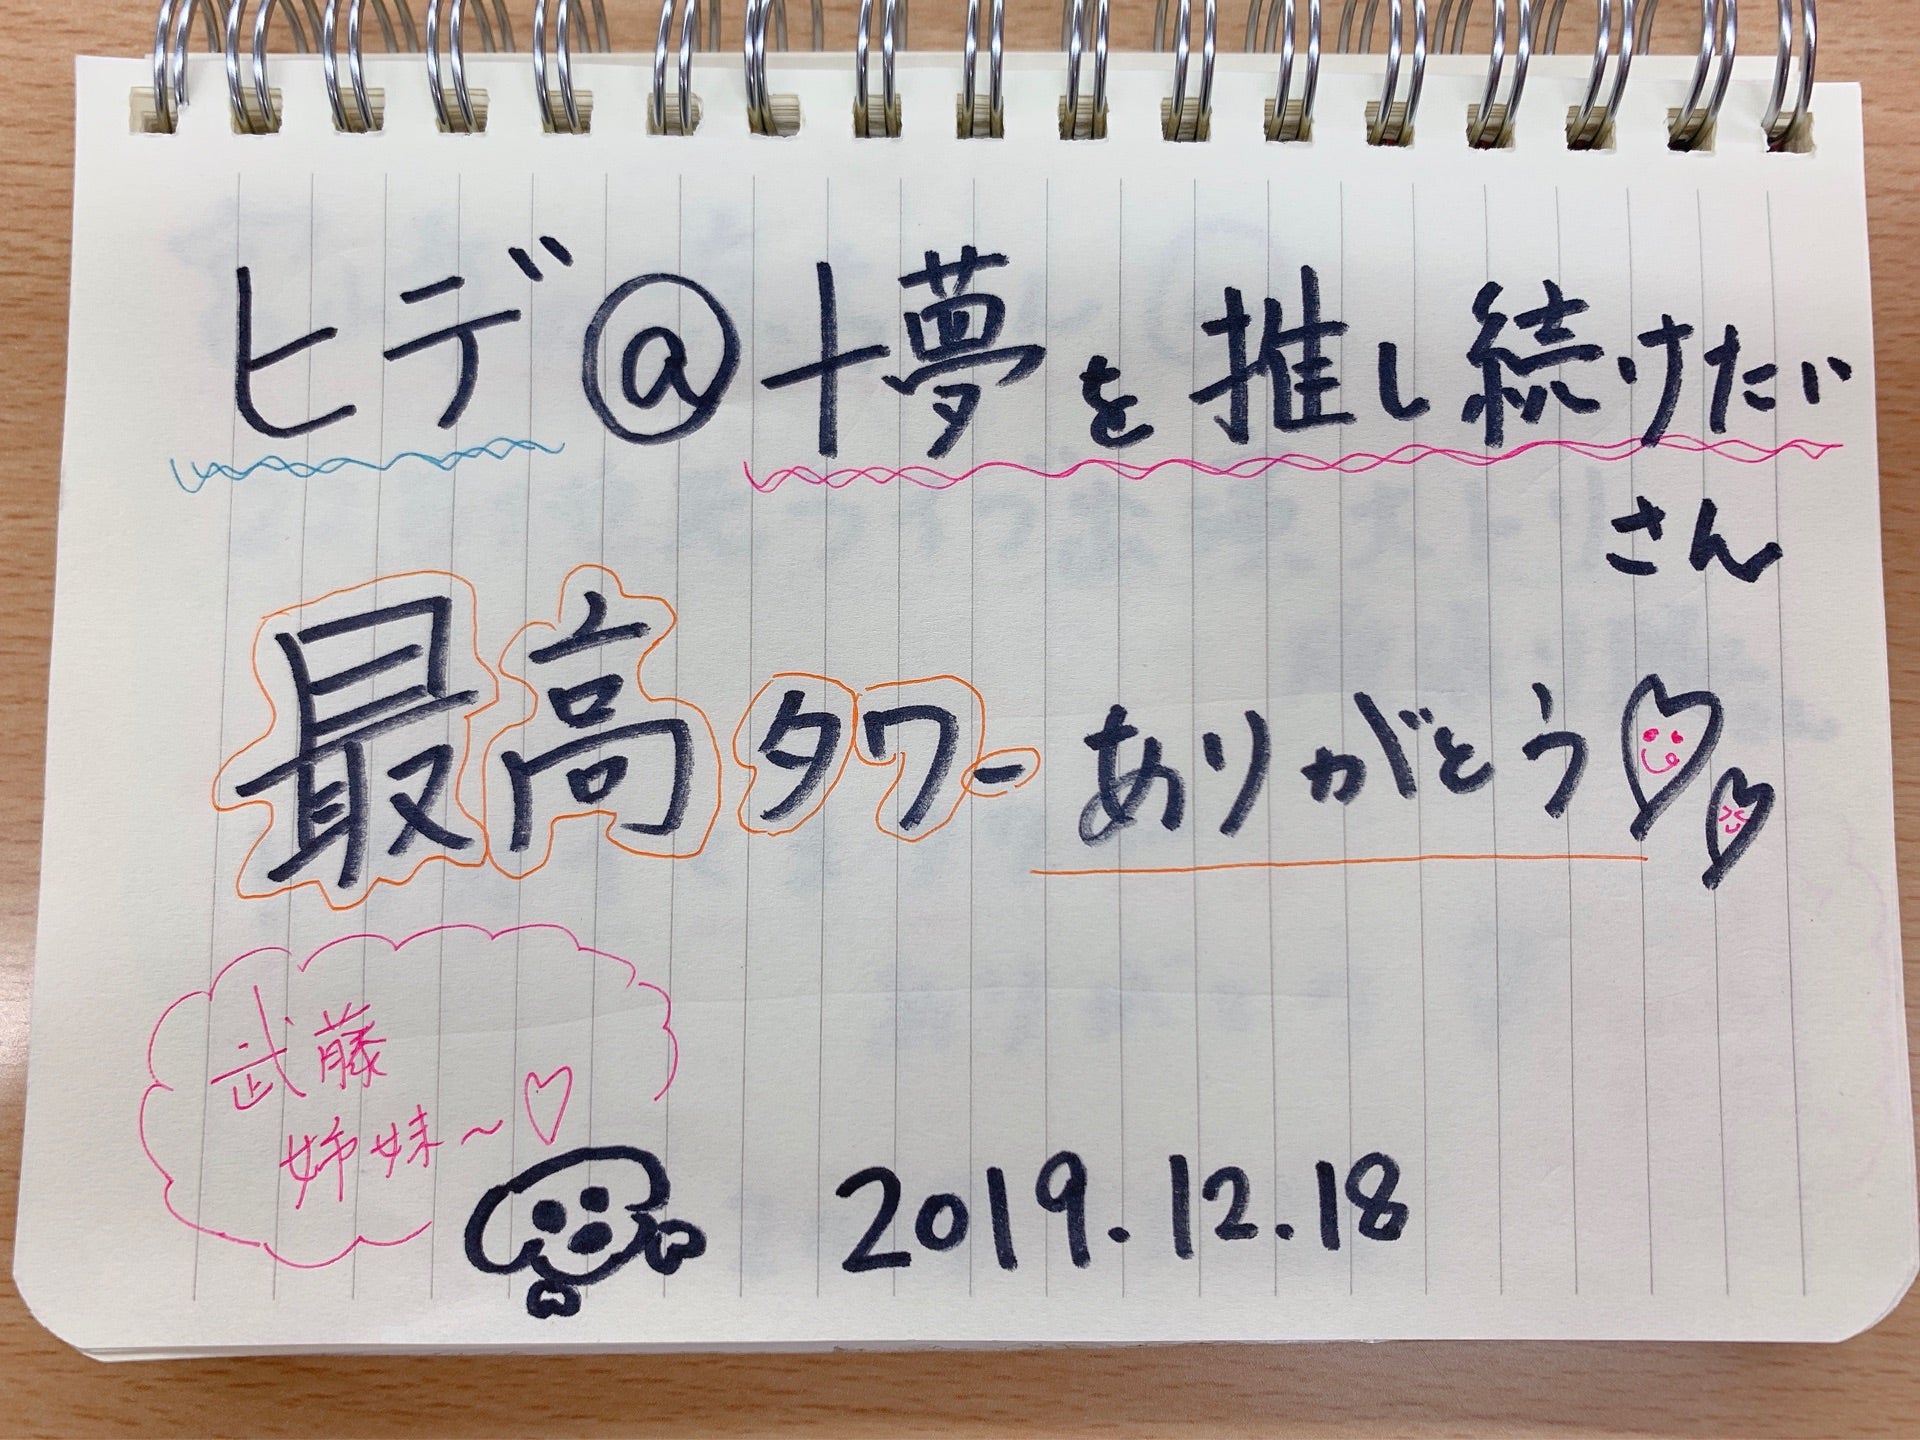 ヒデ@十夢を推し続けたい
さん
最高タワーありがとう♡♡
武藤
姉妹～♡
2019.12.18